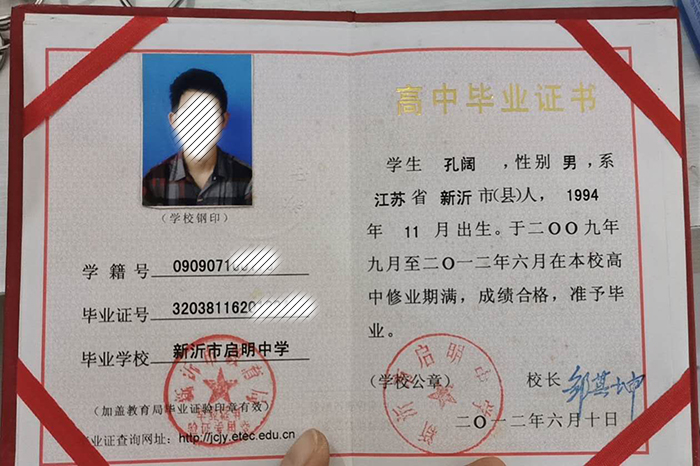 (学校钢印)
学籍号 0909071
毕业证号 3203811620
毕业学校 新沂市启明中学
(加盖教育局毕业证验印章有效)
业证查询网址: http://jcjy.etec.edu.cn
高中毕业证书
学生 孔阔 ,性别 男 ,系
江苏 省 新沂 市(县)人, 1994
年 11 月出生。于二〇〇九年
九月至二〇一二年六月在本校高
中修业期满,成绩合格,准予毕
业。
(学校公章) 校长
二〇一二年六月十日
新沂市启明中学